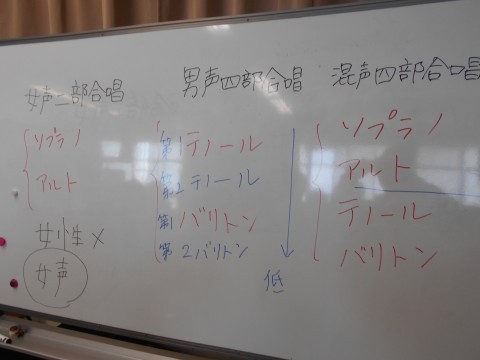 女声二部合唱
ソプラノ
アルト
女性×
女声
男声四部合唱
第1テノール
第2テノール
第1バリトン
第2バリトン
低
混声四部合唱
ソプラノ
アルト
テノール
バリトン